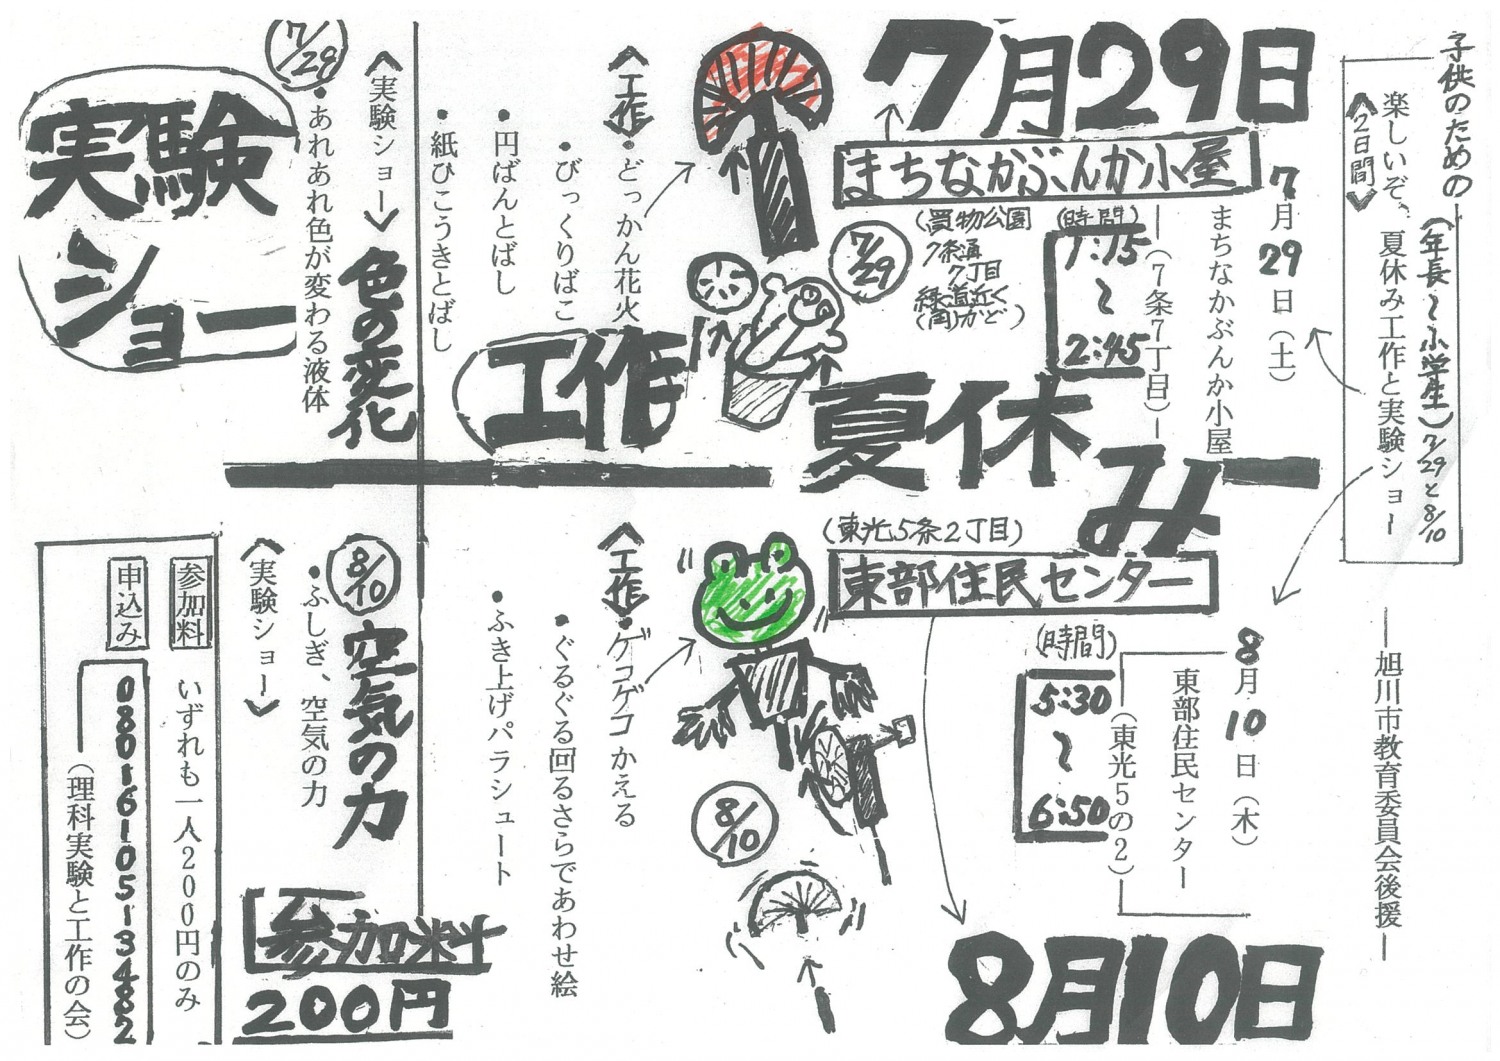 子供のための
(年長～小学生)7/29と8/10
楽しいぞ、夏休み工作と実験ショー
≪2日間≫
―旭川市教育委員会後援―
7月29日
まちなかぶんか小屋
7月29日(土)
まちなかぶんか小屋
―(7条7丁目)―
(時間)
1:15
～
2:45
(買物公園
7条通
7丁目
緑道近く
(角)かど)
7/29
夏休み
工作
≪工作≫
・どっかん花火
・びっくりばこ
・円ばんとばし
・紙ひこうきとばし
7/29
≪実験ショー≫
色の変化
・あれあれ色が変わる液体
実験
ショー
(東光5条2丁目)
東部住民センター
8月10日(木)
東部住民センター
(東光5の2)
(時間)
5:30
～
6:50
8月10日
8/10
≪工作≫
・ゲコゲコかえる
・ぐるぐる回るさらであわせ絵
・ふき上げパラシュート
8/10
空気の力
・ふしぎ、空気の力
≪実験ショー≫
参加料
200円
参加料
いずれも一人200円のみ
申込み
080-1610-5134-82
(理科実験と工作の会)